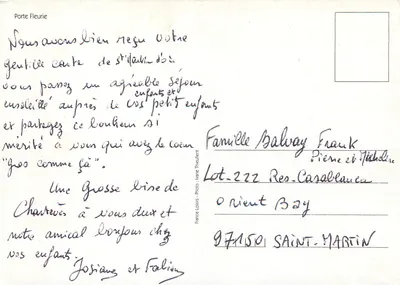 Porte Fleurie
Nous avons bien reçu votre
gentille carte de St Martin d'où
vous passez un agréable séjour
enfants et
ensoleillé auprès de vos petits enfants
et partagez ce bonheur si
mérité à vous qui avez le cœur
"gros comme ça".
Une Grosse bise de
à vous deux et
notre amical bonjour chez
vos enfants.
Josiane et Fabien
Famille Balvay Frank
Pierre et Micheline
Lot. 222 Res. Casablanca
Orient Bay
97150 SAINT-MARTIN